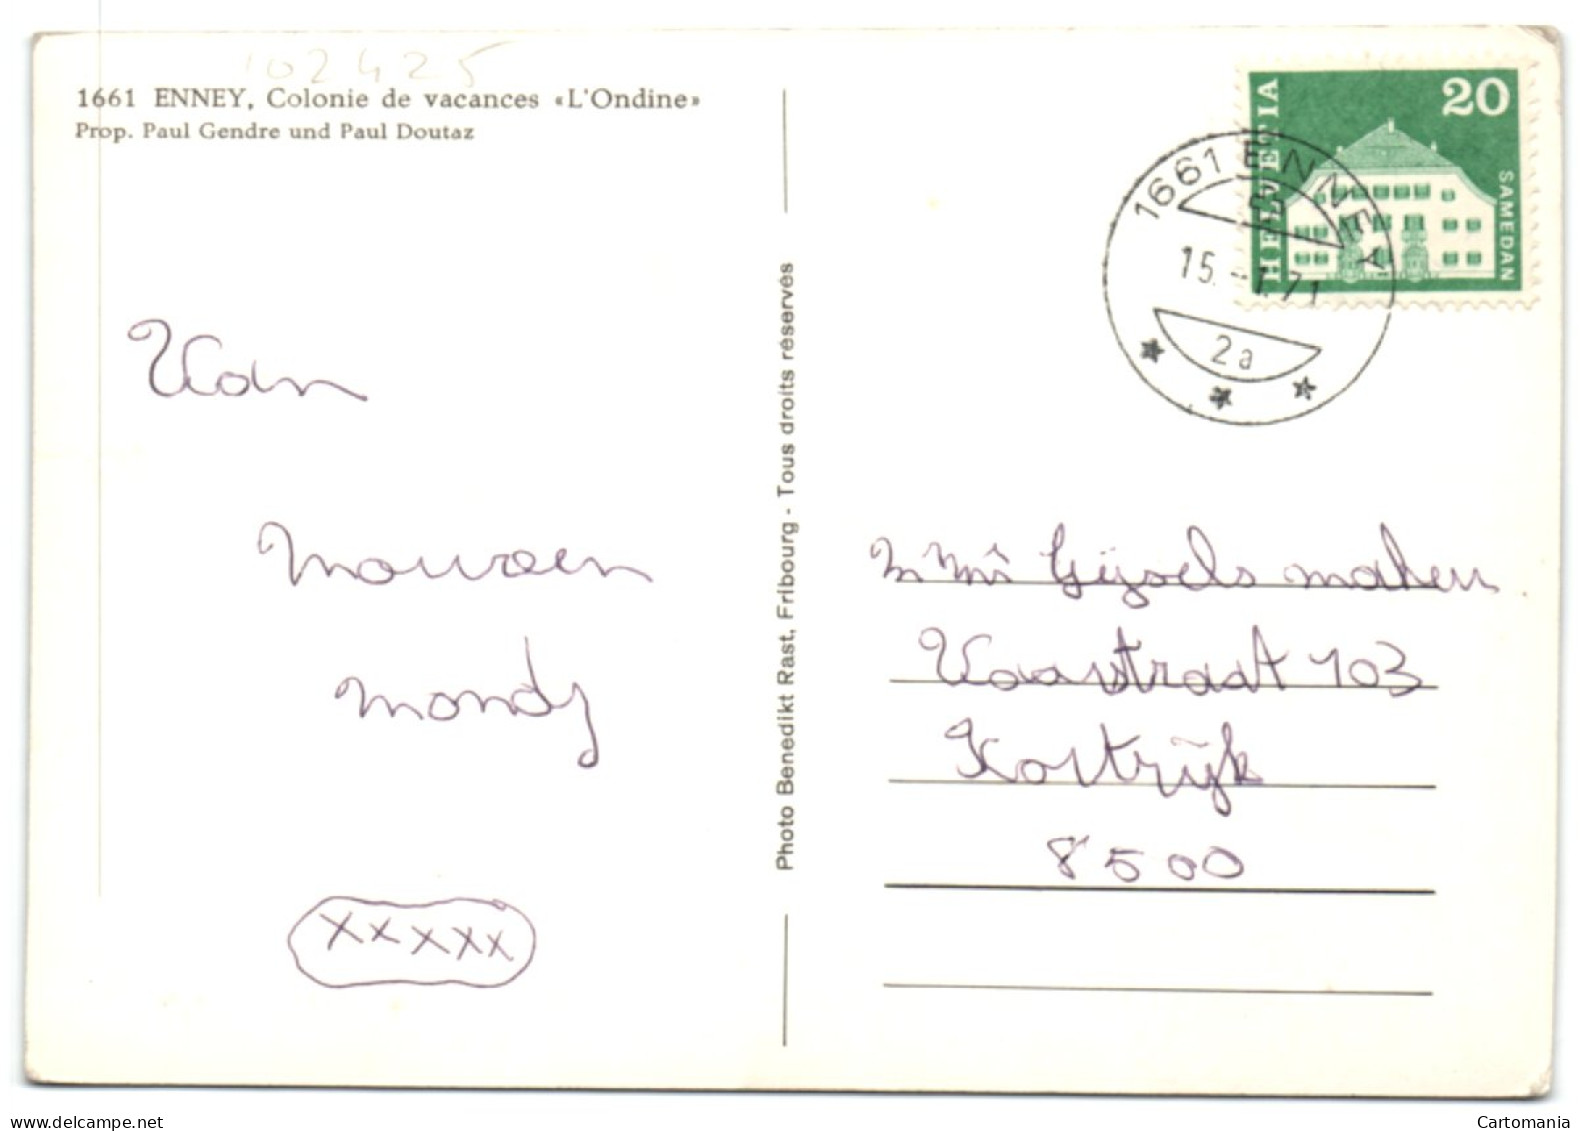 102425
1661 ENNEY, Colonie de vacances «L'Ondine»
Prop. Paul Gendre und Paul Doutaz
HELVETIA
20
SAMEDAN
1661 ENNEY
15.-1.71
2a
Van
Maureen
Mandy
xxxxx
Photo Benedikt Rast, Fribourg - Tous droits réservés
Gijsels
Vaartstraat 103
Kortrijk
8500
www.delcampe.net
Cartomania